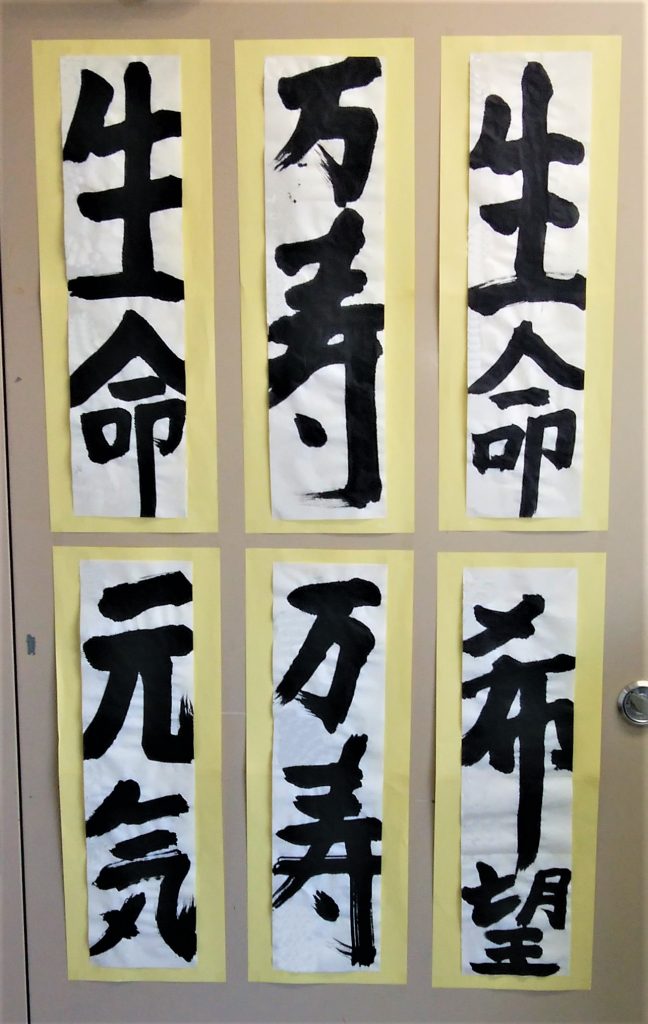 生命
万寿
生命
元気
万寿
希望